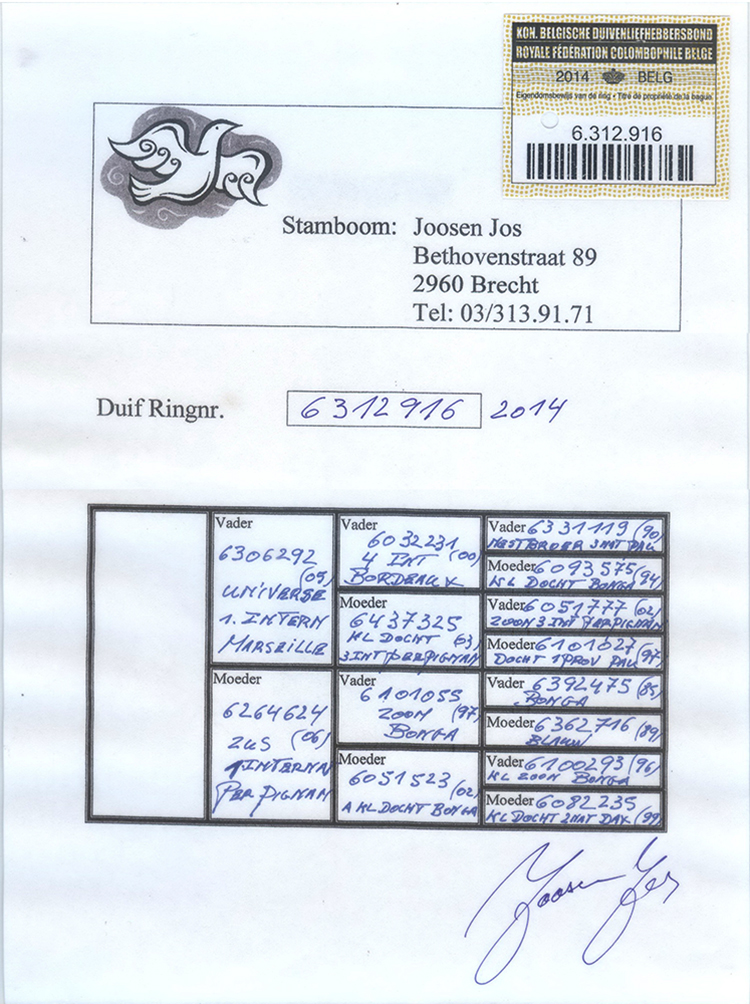 KON. BELGISCHE DUIVENLIEFHEBBERSBOND
ROYALE FÉDÉRATION COLOMBOPHILE BELGE
2014 BELG
Eigendomsbewijs van de ring • Titre de propriété de la bague
6.312.916
Stamboom: Joosen Jos
Bethovenstraat 89
2960 Brecht
Tel: 03/313.91.71
Duif Ringnr. 6312916 2014
Vader
6306292
(05)
UNIVERSE
1. INTERN
MARSEILLE
Moeder
6264624
ZUS (06)
1 INTERNA
PERPIGNAN
Vader
6032231
4 INT (00)
BORDEAUX
Moeder
6437325
KL DOCHT (03)
3 INT PERPIGNAN
Vader
6101055
ZOON (97)
BONGA
Moeder
6051523 (02)
A KL DOCHT BONGA
Vader 6331119 (90)
NESTBROER 3 NAT PAU
Moeder 6093575 (94)
KL DOCHT BONGA
Vader 6051777 (02)
ZOON 3 INT PERPIGNAN
Moeder 6101027 (97)
DOCHT 1 PROV PAU
Vader 6392475 (85)
BONGA
Moeder 6362716 (89)
BLAUW
Vader 6100293 (96)
KL ZOON BONGA
Moeder 6082235 (99)
KL DOCHT 2 NAT DAX
Joosen Jos